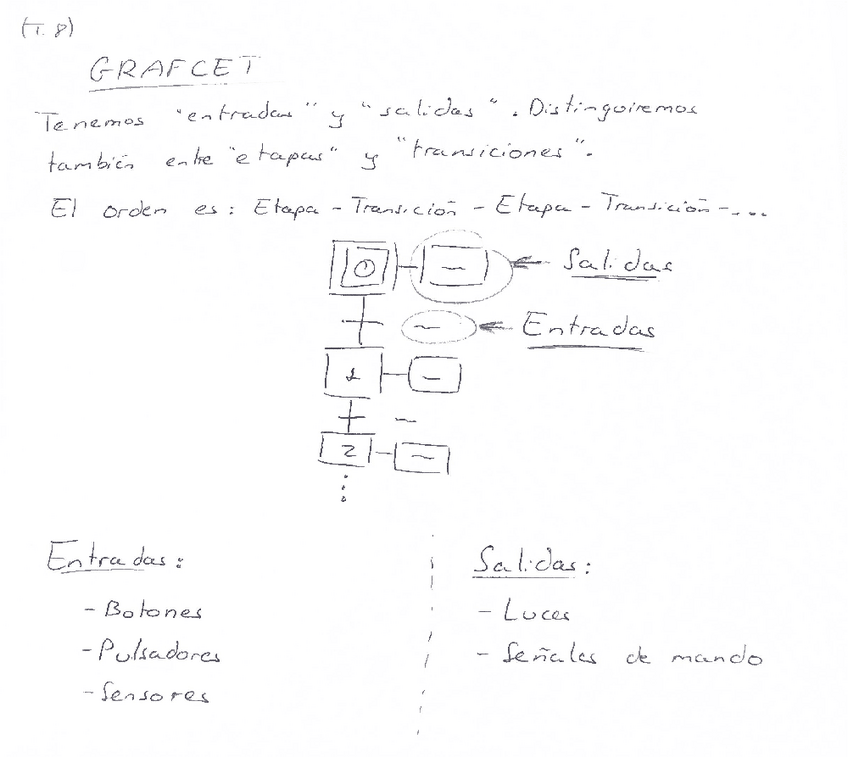 (T. 8)
GRAFCET
Tenemos "entradas" y "salidas". Distinguiremos
también entre "etapas" y "transiciones".
El orden es: Etapa - Transición - Etapa - Transición - ...
0 — Salidas
— Entradas
1 —
—
2 —
Entradas:
- Botones
- Pulsadores
- Sensores
Salidas:
- Luces
- Señales de mando